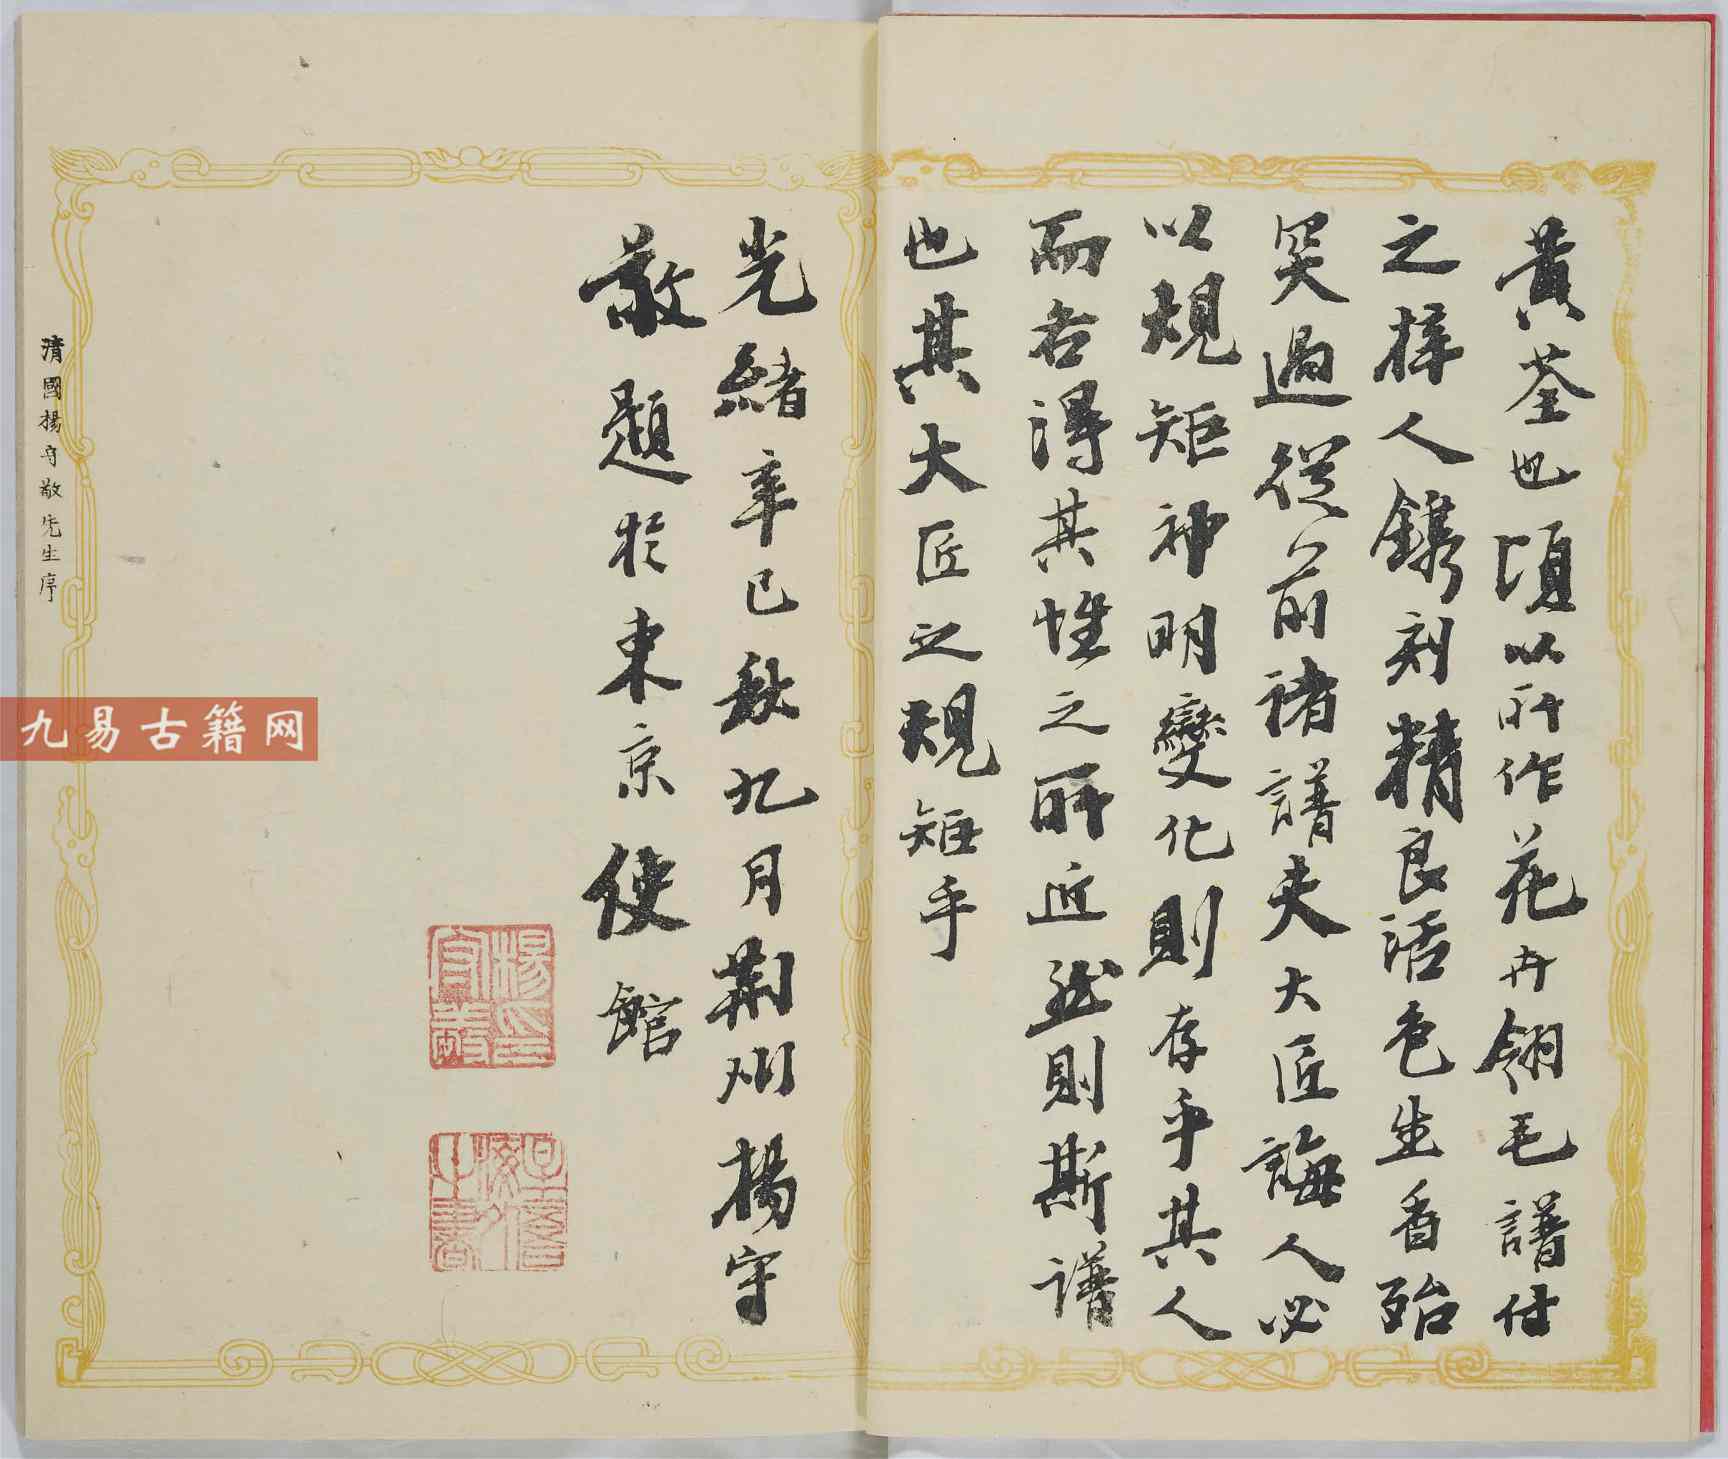 黃荃也頃以所作花卉翎毛譜付
之梓人鐫刻精良活色生香殆
突過從前諸譜夫大匠誨人必
以規矩神明變化則存乎其人
而各得其性之所近然則斯譜
也其大匠之規矩乎
光緒辛巳秋九月荆州楊守
敬題於東京使館
楊印守敬
清國楊守敬先生序
九易古籍网